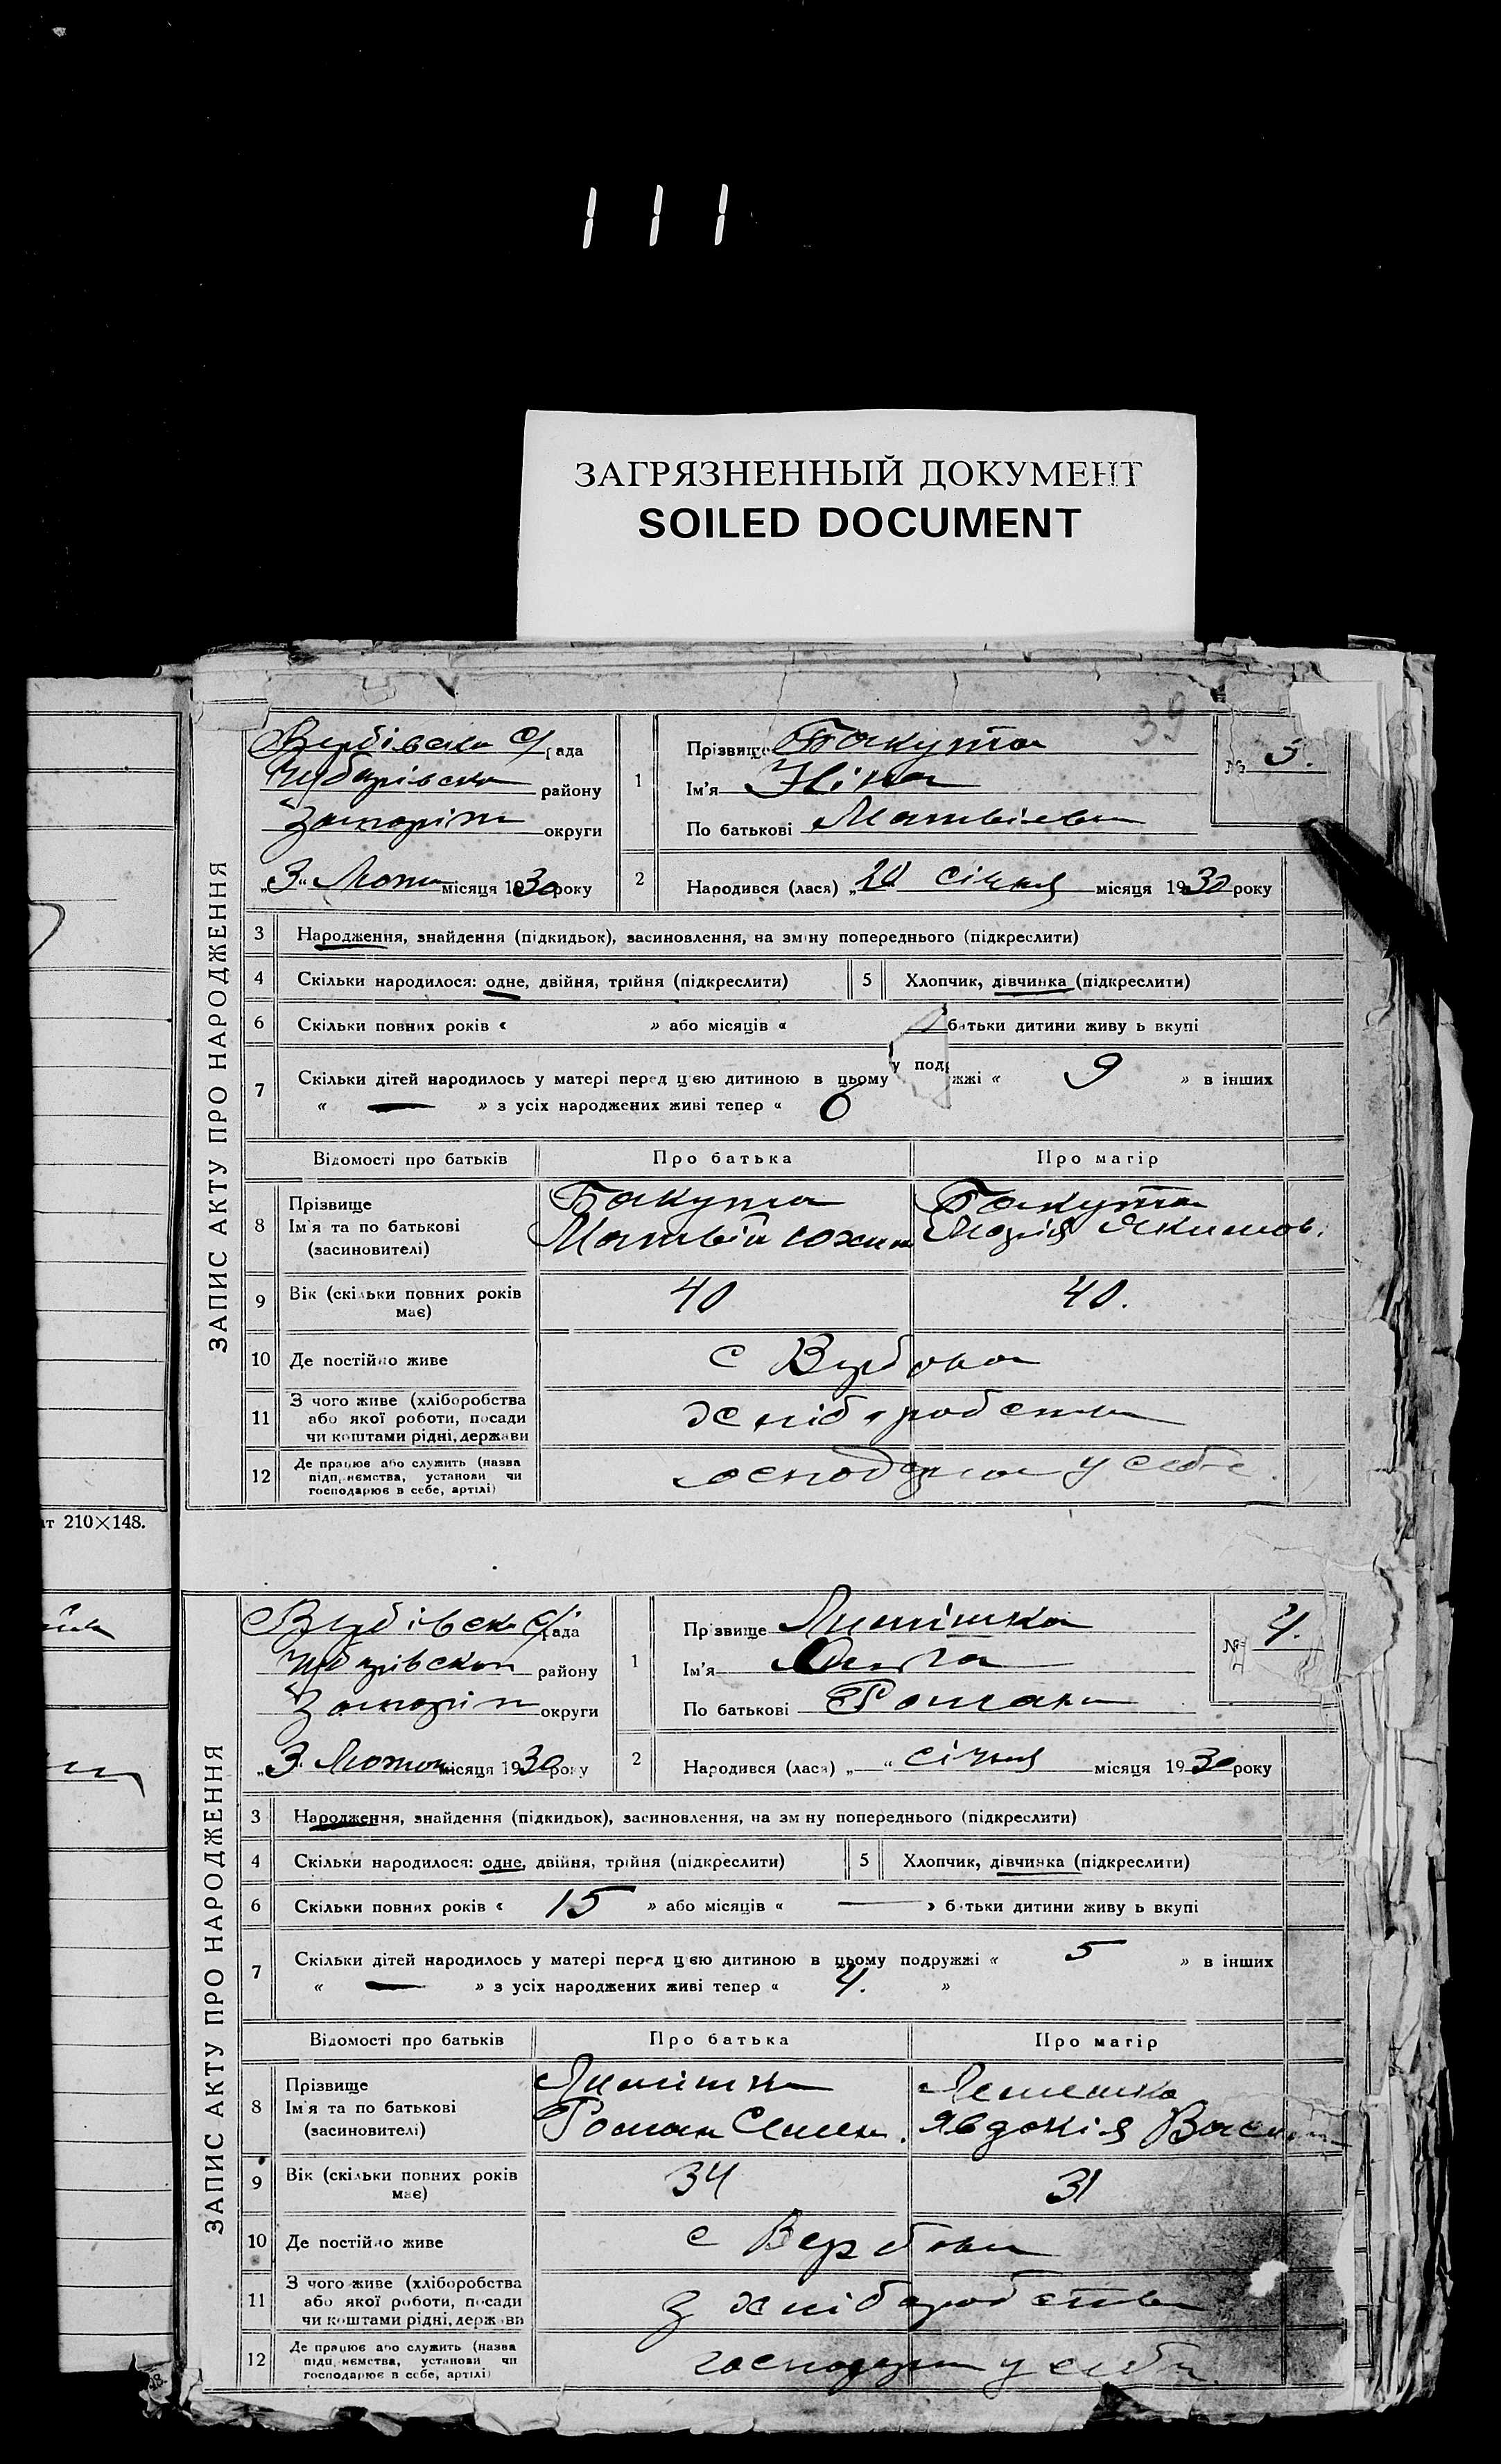 111
ЗАГРЯЗНЕННЫЙ ДОКУМЕНТ
SOILED DOCUMENT
39
ЗАПИС АКТУ ПРО НАРОДЖЕННЯ
Вербівська С/рада
району
округи
"3" місяця 1930 року
1
Прізвище Бакута
Ім'я Ніна
По батькові
№ 3.
2
Народився (лася) „20 січня місяця 1930 року
3 Народження, знайдення (підкидьок), засиновлення, на зміну попереднього (підкреслити)
4 Скільки народилося: одне, двійня, трійня (підкреслити) 5 Хлопчик, дівчинка (підкреслити)
6 Скільки повних років « » або місяців « батьки дитини живу ь вкупі
7 Скільки дітей народилось у матері перед цією дитиною в цьому подружжі « 9 » в інших
« — » з усіх народжених живі тепер « 6
Відомості про батьків Про батька Про матір
8 Прізвище Бакута Бакута
Ім'я та по батькові Матвій Юхим Марія Якимов.
(засиновителі)
9 Вік (скільки повних років має) 40 40.
10 Де постійно живе с Вербова
11 З чого живе (хліборобства
або якої роботи, посади
чи коштами рідні, держави хліборобства
12 Де працює або служить (назва
підприємства, установи чи
господарює в себе, артілі) у себе.
ат 210×148.
ЗАПИС АКТУ ПРО НАРОДЖЕННЯ
Вербівська С/рада
району
округи
„3" місяця 1930 року
1
Прізвище
Ім'я Ольга
По батькові Роман
№ 4.
2
Народився (лася) „—" січня місяця 1930 року
3 Народження, знайдення (підкидьок), засиновлення, на зміну попереднього (підкреслити)
4 Скільки народилося: одне, двійня, трійня (підкреслити) 5 Хлопчик, дівчинка (підкреслити)
6 Скільки повних років « 15 » або місяців « — » батьки дитини живу ь вкупі
7 Скільки дітей народилось у матері перед цією дитиною в цьому подружжі « 5 » в інших
« — » з усіх народжених живі тепер « 4. »
Відомості про батьків Про батька Про матір
8 Прізвище
Ім'я та по батькові Роман Семен. Явдокія
(засиновителі)
9 Вік (скільки повних років має) 34 31
10 Де постійно живе с Вербова
11 З чого живе (хліборобства
або якої роботи, посади
чи коштами рідні, держави з хліборобства
12 Де працює або служить (назва
підприємства, установи чи
господарює в себе, артілі) у себе